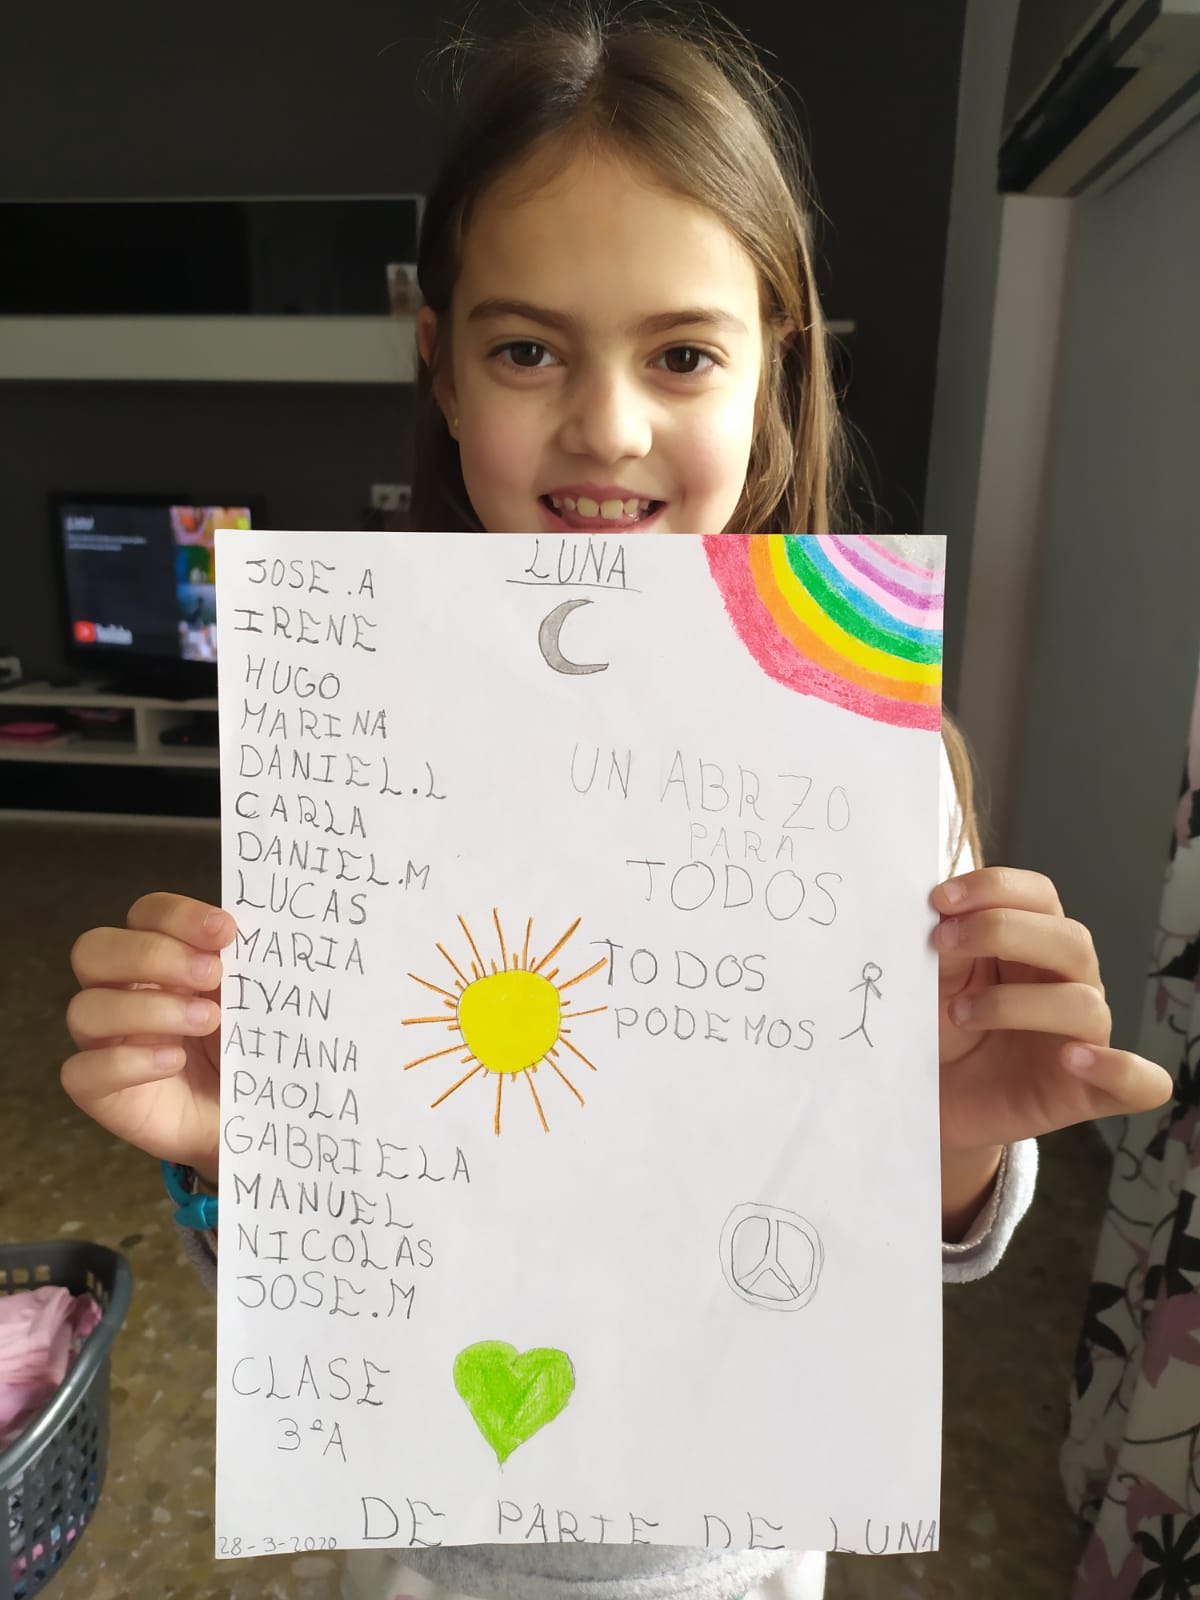 LUNA
JOSE.A
IRENE
HUGO
MARINA
DANIEL.L
CARLA
DANIEL.M
LUCAS
MARIA
IVAN
AITANA
PAOLA
GABRIELA
MANUEL
NICOLAS
JOSE.M
CLASE
3ºA
UN ABRZO
PARA
TODOS
TODOS
PODEMOS
DE PARTE DE LUNA
28-3-2020
YouTube